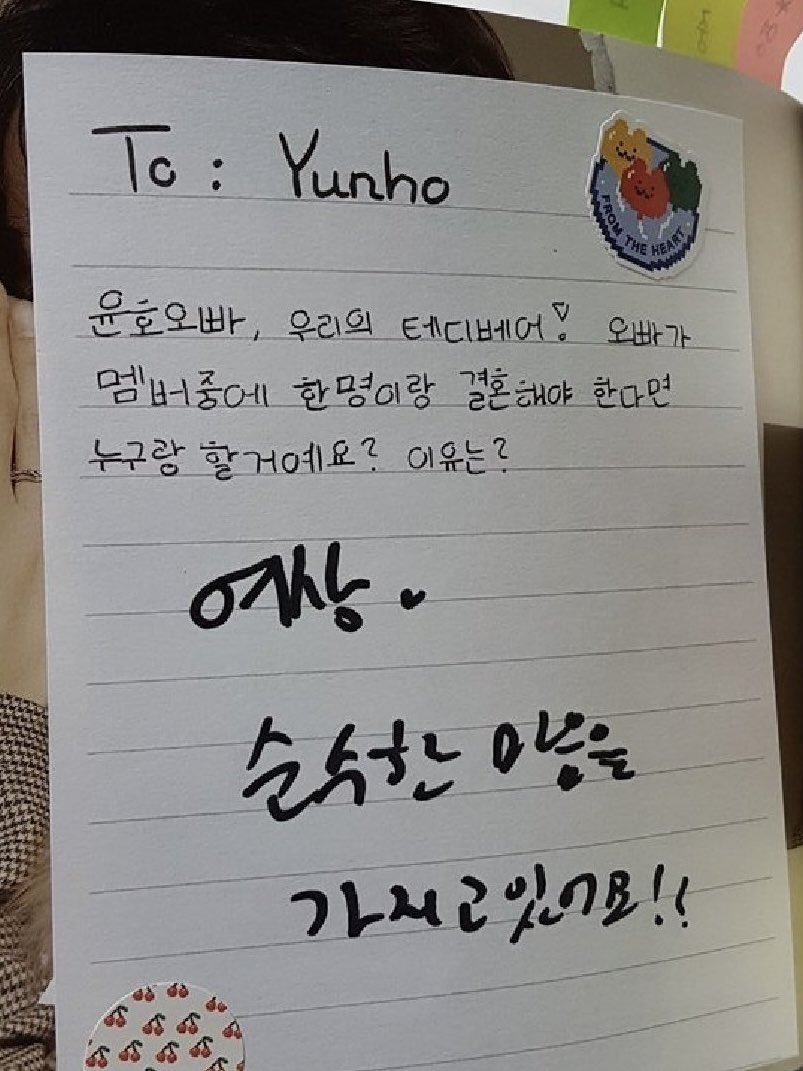 To : Yunho
FROM THE HEART
윤호오빠, 우리의 테디베어♡ 오빠가
멤버중에 한명이랑 결혼해야 한다면
누구랑 할거예요? 이유는?
여상.
순수한 마음을
가지고있어요!!